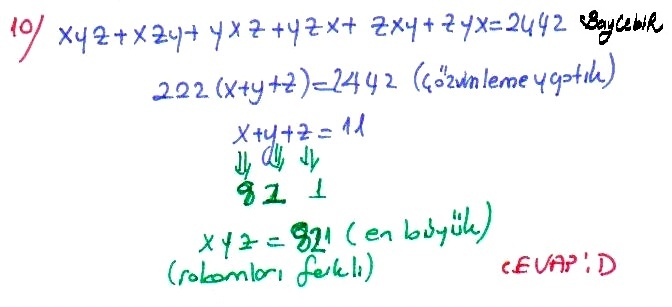 10) xyz+xzy+yxz+yzx+zxy+zyx=2442 Baycebir
222(x+y+z)=2442 (çözümleme yaptık)
x+y+z=11
8 2 1
xyz=821 (en büyük)
(rakamları farklı)
CEVAP:D